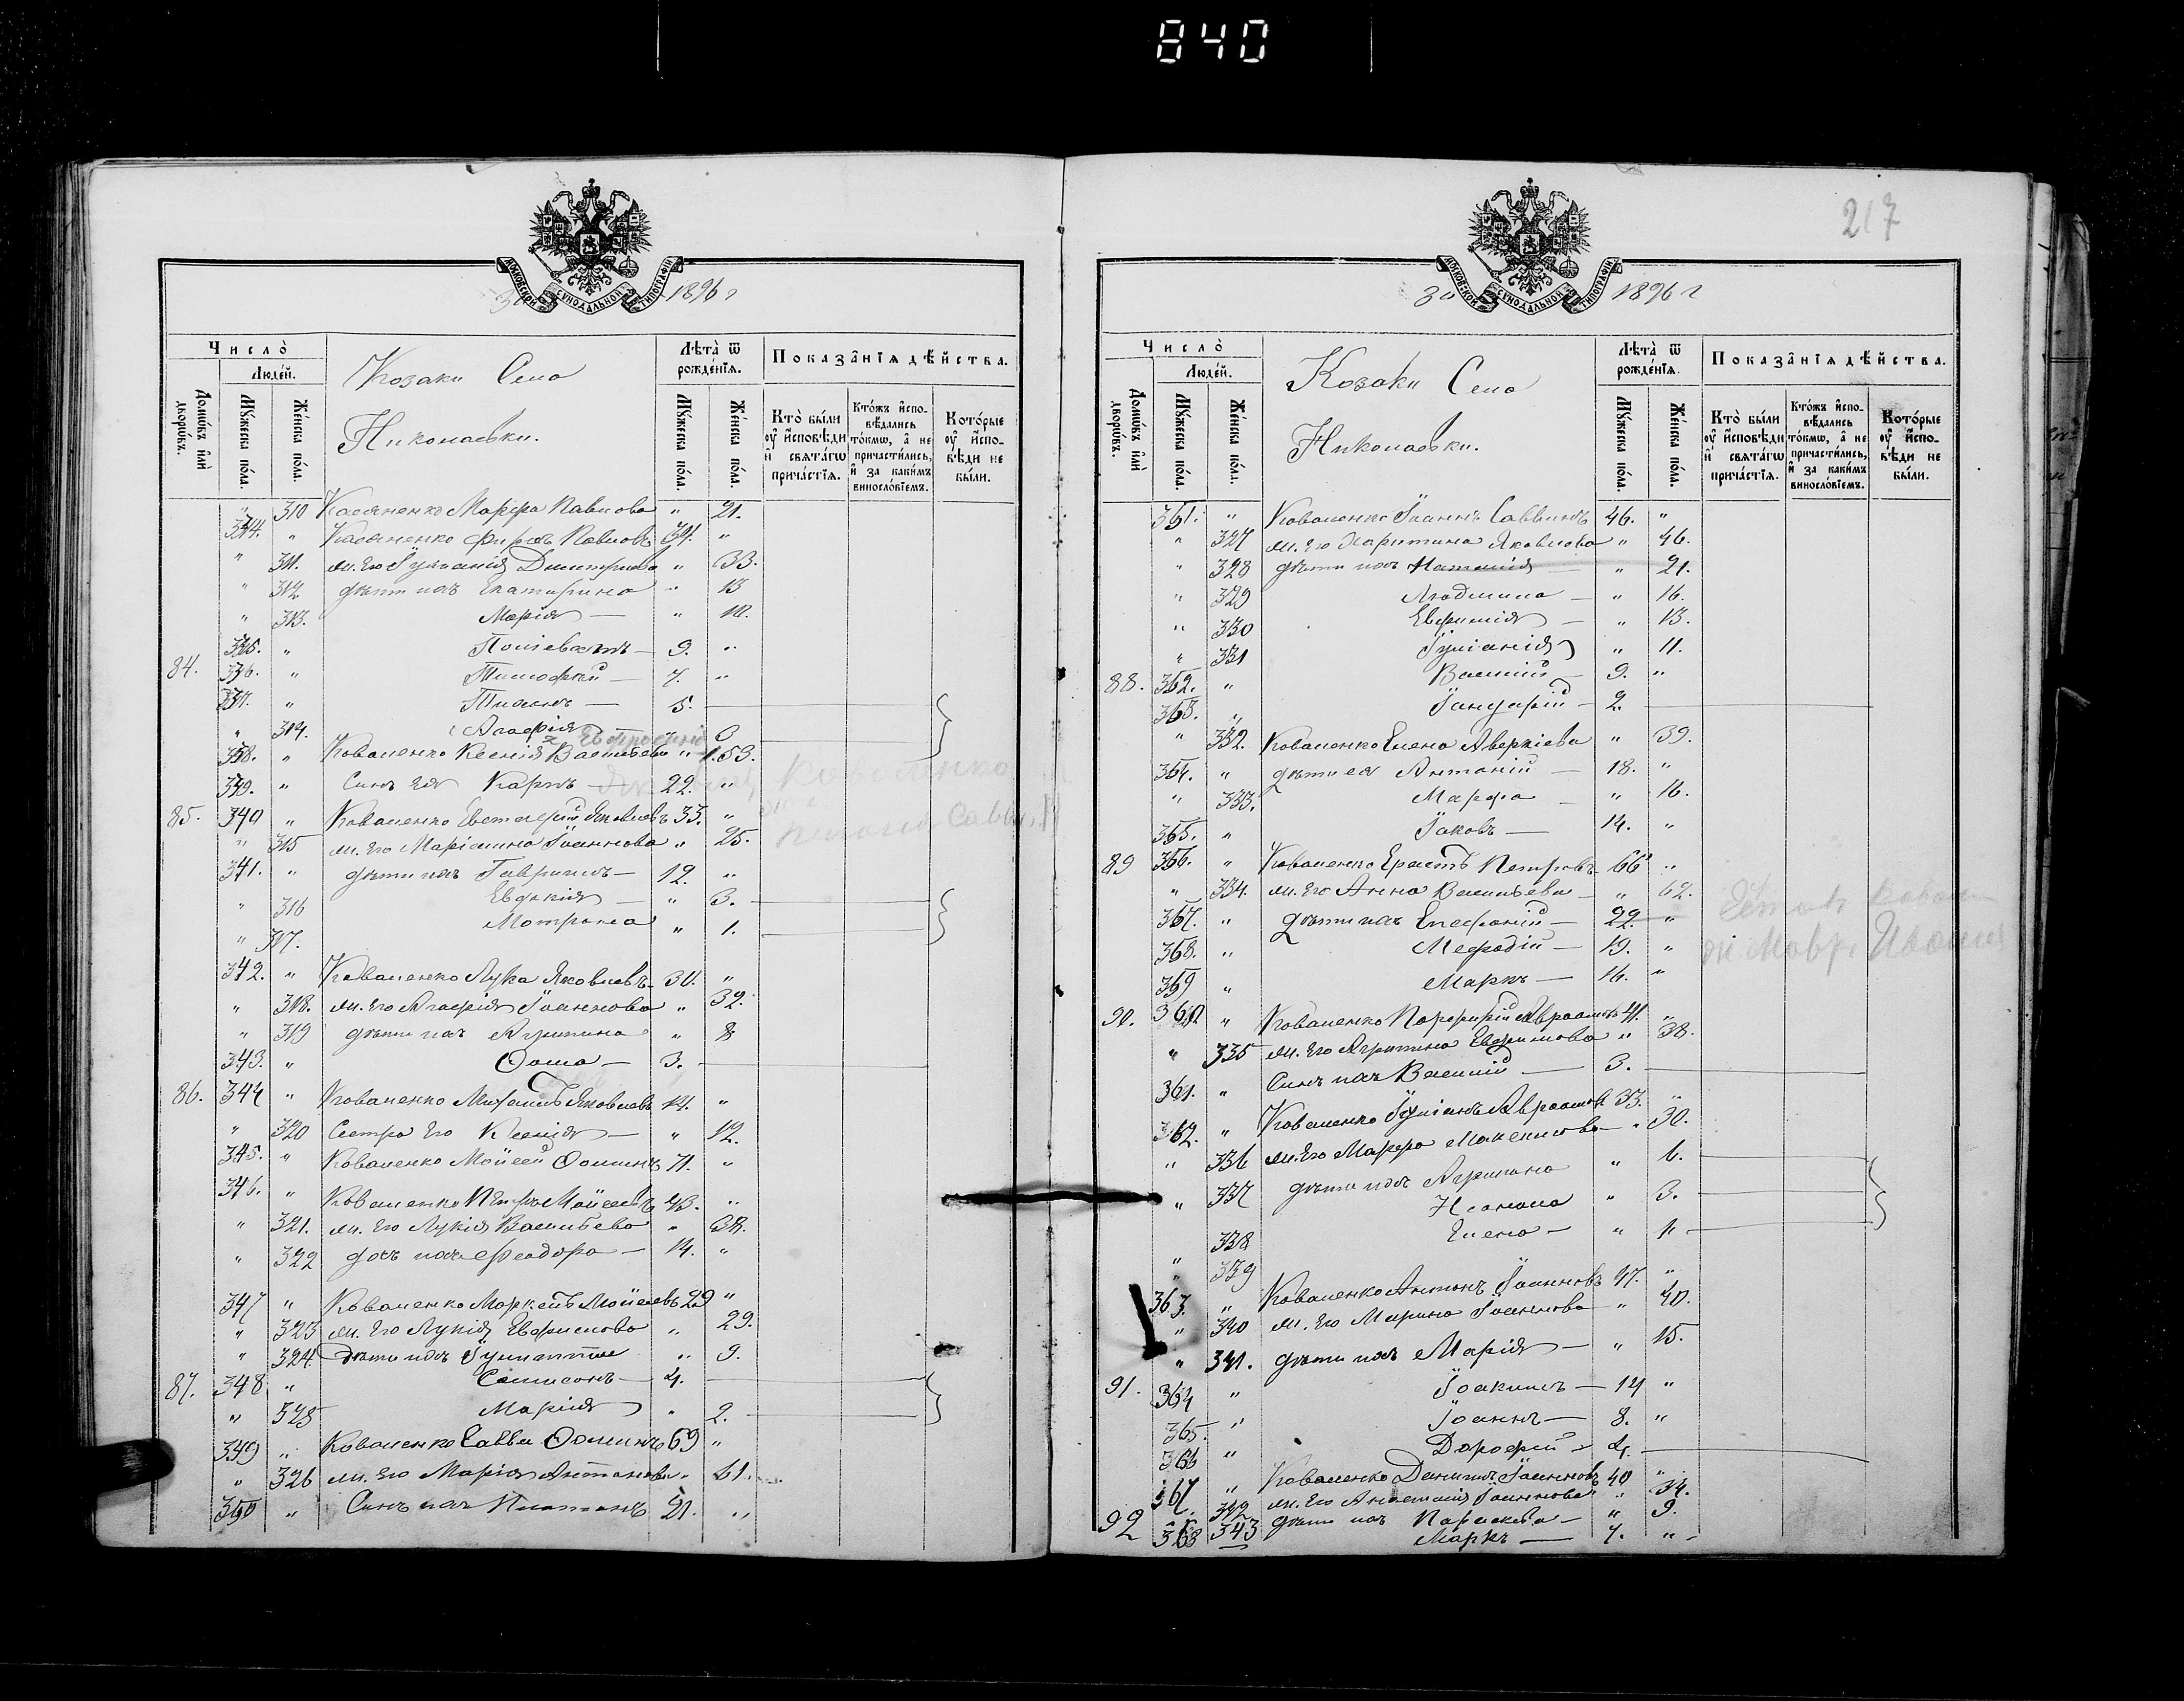 840
МОСКОВСКОЙ СУНОДАЛЬНОЙ ТИПОГРАФІИ
1896 г
Число̀
Людей.
Домѡвъ и҆лѝ дворѡвъ.
Мꙋжеска по́ла.
Же́нска по́ла.
Козаки Села
Николаевки.
Лѣта̀ ѿ рожде́нїѧ.
Мꙋжеска по́ла.
Же́нска по́ла.
Показа̂нїѧ дѣ́йства.
Кто̀ бы́ли ᲂу҆ и҆сповѣди и҆ свята́гѡ прича́стїѧ.
Кто́жъ и҆спо-вѣдались то́кмѡ, а҆ не причасти́лись, и҆ за каки́мъ винослов́їемъ.
Кото́рые ᲂу҆ и҆спо-вѣди не бы́ли.
" 310 Касяненко Марѳа Павлова " 21.
334. " Касяненко Фирсъ Павловъ 34. "
" 311. ж. его Іуліанія Дмитріева " 33.
" 312 дѣти ихъ Екатерина " 13
" 313. Марія — " 10.
335. " Поліевктъ — 9. "
84. 336. " Тимофей — 7. "
337. " — 5.
" 314. Агафія
338. " Коваленко Ксенія Васильева " 53.
339. " Сынъ ея Карпъ — 22. "
85. 340 " Коваленко Евстафій Яковлевъ 33. "
" 315 ж. его Маріанна Іоаннова " 25.
341. " дѣти ихъ Гавріилъ — 12. "
" 316 Евдокія — " 3.
" 317. Матрона " 1.
342. " Коваленко Лука Яковлевъ 30. "
" 318. ж. его Агафія Іоаннова " 32.
" 319 дѣти ихъ Агрипина " 8
343. " Ѳома — 3.
86. 344 " Коваленко Михаилъ Яковлевъ 14. "
" 320 Сестра его Ксенія — " 12.
345. " Коваленко Моѵсей Ѳоминъ 71. "
346. " Коваленко Петръ Моѵсеевъ 43. "
" 321. ж. его Лукія Васильева " 38.
" 322 дочь ихъ Феодора — 14. "
347 " Коваленко Маркелъ Моѵсеевъ 29 "
" 323 ж. его Лукія Ефимова " 29.
" 324. дѣти ихъ Іулиттія " 9.
87. 348 " Сампсонъ — 4.
" 325 Марія " 2.
349 " Коваленко Савва Ѳоминъ 69 "
" 326 ж. его Марія Антонова " 61.
350 " Сынъ ихъ Платонъ 21. "
217
МОСКОВСКОЙ СУНОДАЛЬНОЙ ТИПОГРАФІИ
За 1896 г
Число̀
Людей.
Домѡвъ и҆лѝ дворѡвъ.
Мꙋжеска по́ла.
Же́нска по́ла.
Козаки Села
Николаевки.
Лѣта̀ ѿ рожде́нїѧ.
Мꙋжеска по́ла.
Же́нска по́ла.
Показа̂нїѧ дѣ́йства.
Кто̀ бы́ли ᲂу҆ и҆сповѣди и҆ свята́гѡ прича́стїѧ.
Кто́жъ и҆спо-вѣдались то́кмѡ, а҆ не причасти́лись, и҆ за каки́мъ винослов́їемъ.
Кото́рые ᲂу҆ и҆спо-вѣди не бы́ли.
361. " Коваленко Іоаннъ Саввинъ 46. "
" 327 ж. его Харитина Яковлева " 46.
" 328 дѣти ихъ Наталія — " 21.
" 329 Людмила — " 16.
" 330 Евфимія — " 13.
" 331 Іуліанія " 11.
88. 362. " Василій — 9. "
363. " Іануарій — 2.
" 332. Коваленко Елена Аверкіева " 39.
364. " дѣти ея Антоній — 18. "
" 333. Марфа — " 16.
365. " Іаковъ — 14. "
89 366. " Коваленко Ерастъ Петровъ 66 "
" 334. ж. его Анна Васильева — " 62.
367. " дѣти ихъ Епифаній — 22. "
368. " Меѳодій — 19. "
369 " Маркъ — 16. "
90. 360 " Коваленко Порфирій Авраамовъ 41. "
" 335 ж. его Агрипина Евфимова " 38.
361. " Сынъ ихъ Василій — 3.
362. " Коваленко Іуліанъ Авраамовъ 33. "
" 336 ж. его Марфа Максимова " 30.
" 337 дѣти ихъ Агрипина " 6.
" 338 Нонна " 3.
" 339 Елена — " 1
363. " Коваленко Антонъ Іоанновъ 47. "
" 340 ж. его Марина Іоаннова " 40.
" 341. дѣти ихъ Марія — " 15.
91. 364 " Іоакимъ — 14 "
365. " Іоаннъ — 8. "
366 " Дорофей 4.
367 " Коваленко Даніилъ Іоанновъ 40 "
" 342 ж. его Анастасія Іоаннова " 34.
343 дѣти ихъ Параскева — " 9.
92 368 Маркъ — 7. "